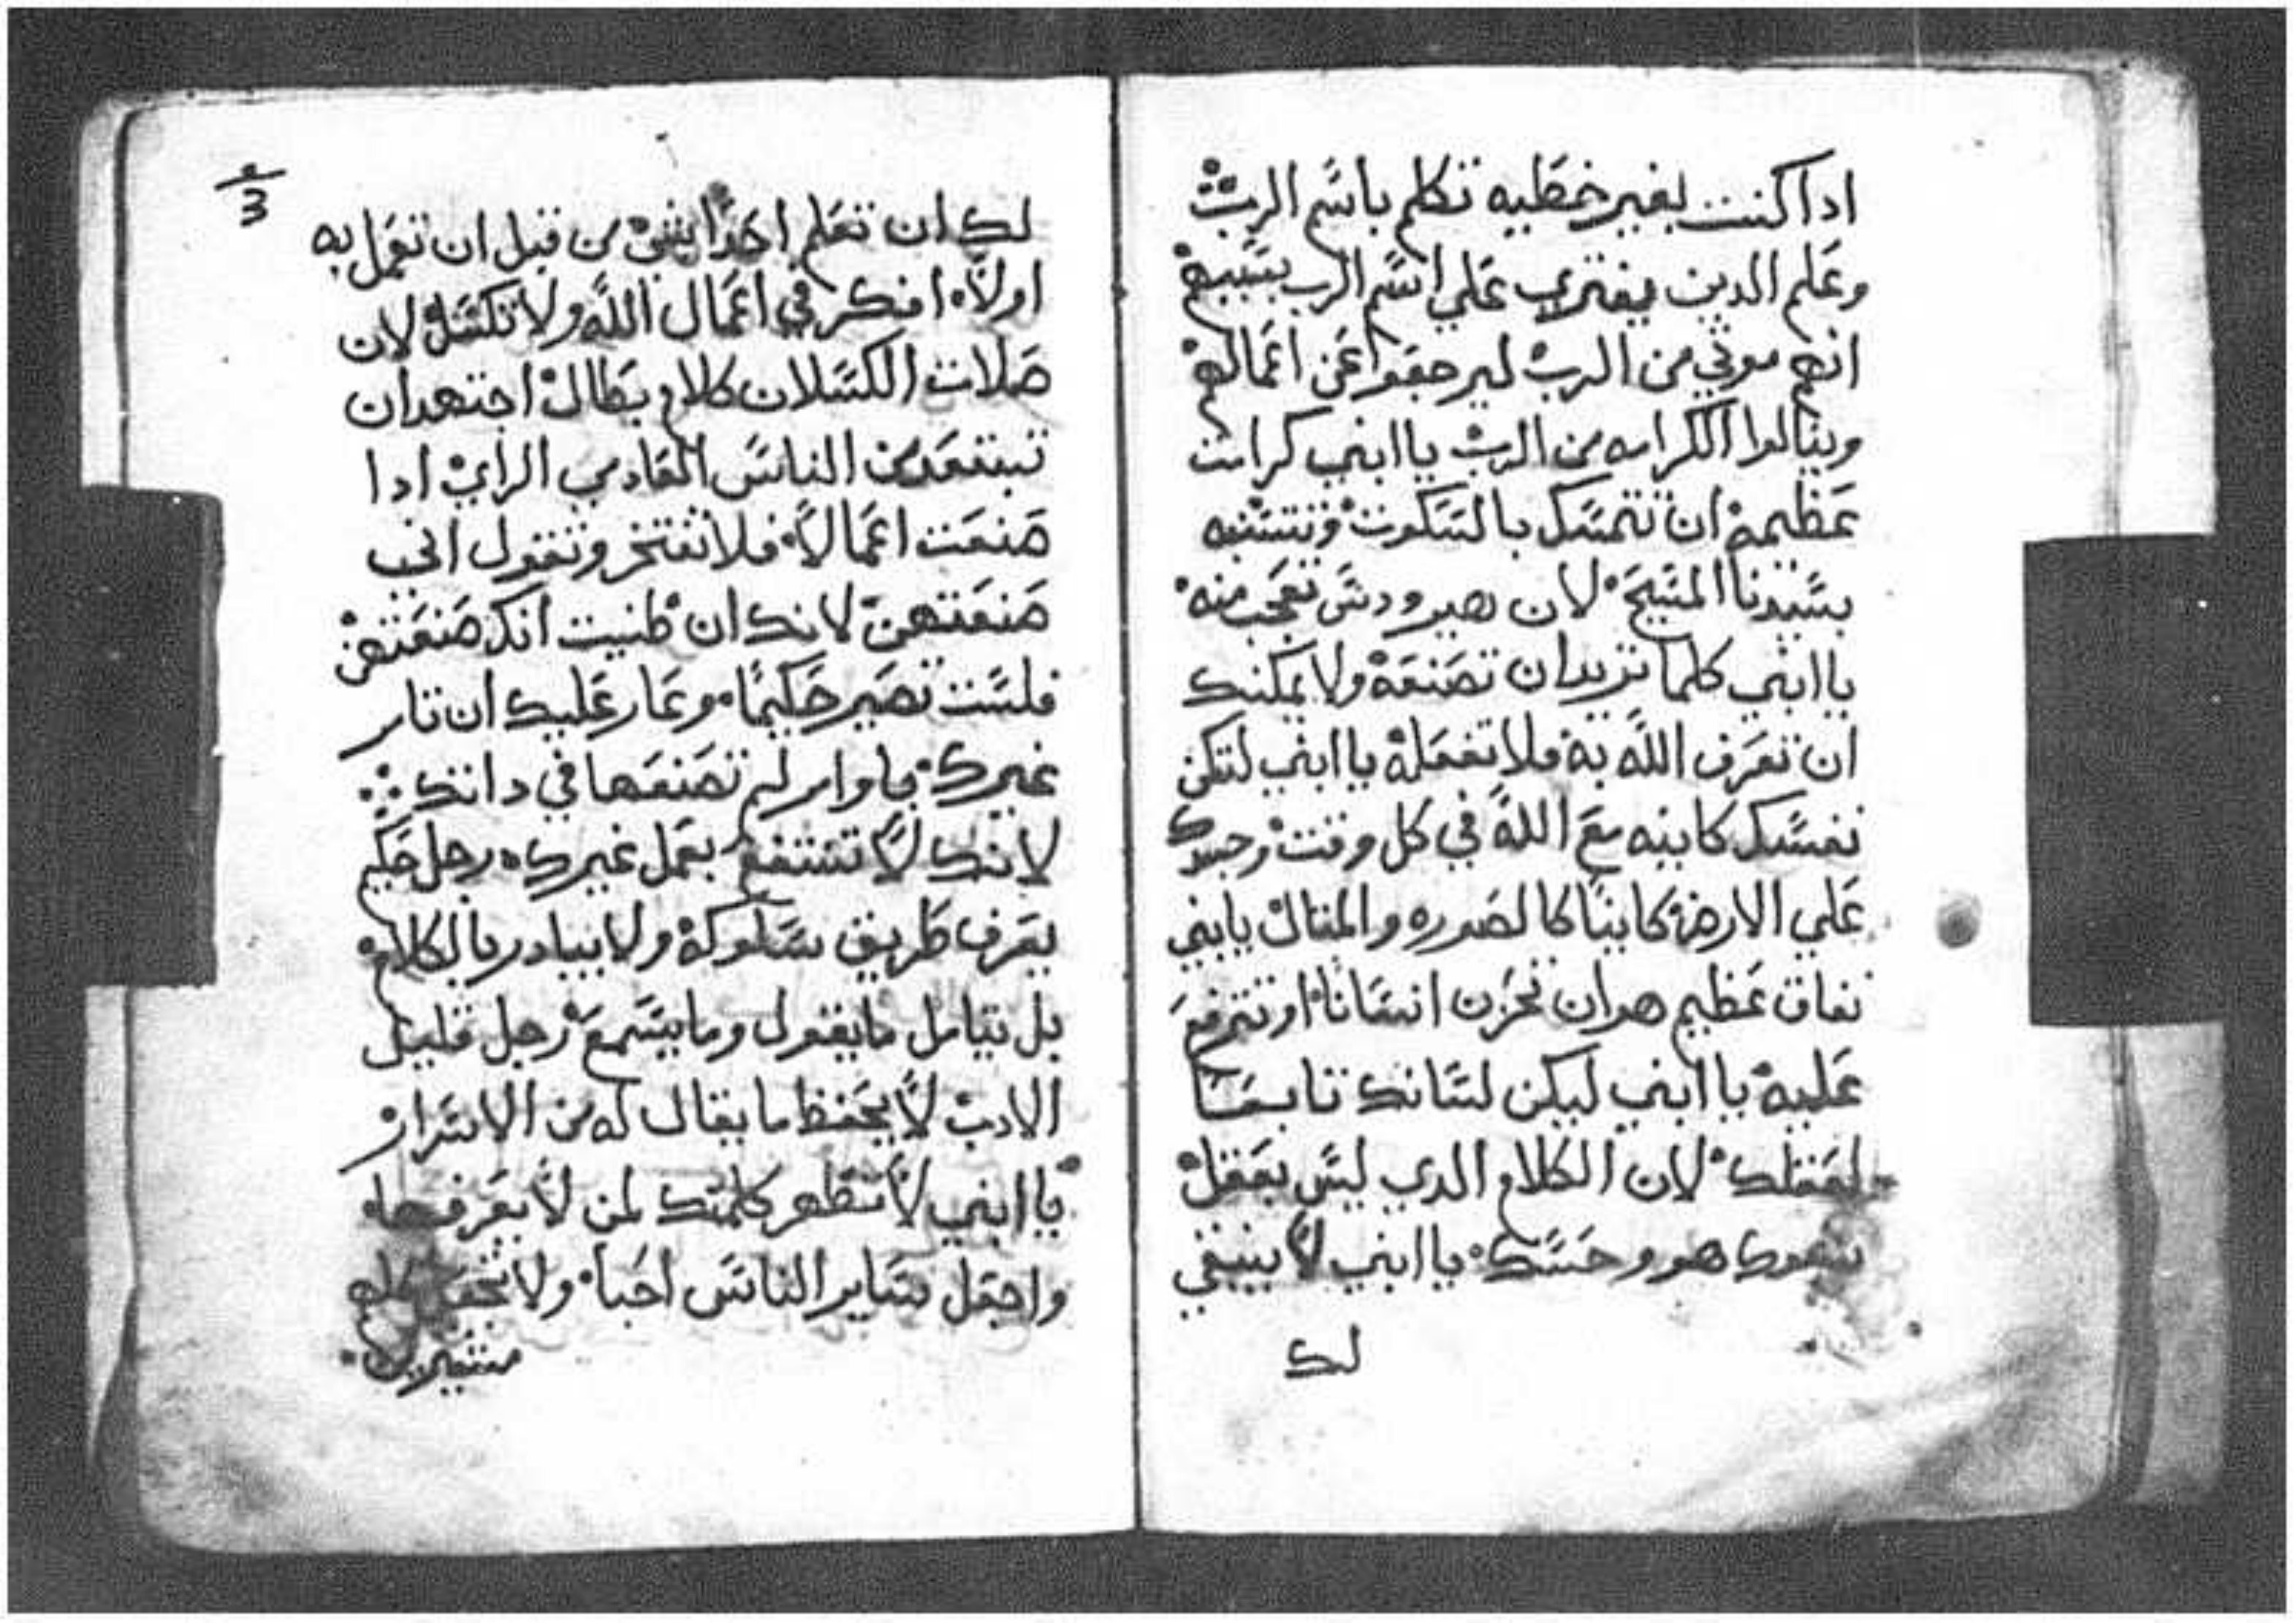 ادا كنت بغير خطيه تكلم باسم الرب
وعلم الدين يفتري علي اسم الرب بسببهم
انهم موتي من الرب ليرجعوا عن اعمالهم
وينالوا الكرامه من الرب يا ابني كرامت
عظيمة ان تتمسك بالسكوت وتتشبه
بسيدنا المسيح لان هيرودس تعجب منه
يا ابني كلما تريد ان تصنعة ولا يمكنك
ان تعرف الله به فلا تفعلة يا ابني لتكن
نفسك كاينه مع الله في كل وقت وجسدك
علي الارض كاينًا كالصوره والمثال يابني
نفاق عظيم هو ان تحزن انسانا او تترفع
عليه يا ابني ليكن لسانك تابعا
لعقلك لان الكلام الدي ليس بعقل
هو وحسك يا ابني لا ينبغي
لك
لك ان تعلم احدًا بشي من قبل ان تعمل به
اولا افكر في اعمال الله ولا تكسل لان
صلات الكسلان كلام بطال اجتهد ان
تبتعد من الناس العادمي الراي ادا
صنعت اعمالا فلا تفتخر وتقول اني
صنعتهن لانك ان ظنيت انك صنعتهن
فلست تصير حكيمًا وعار عليك ان تامر
غيرك باوامر لم تصنعها في داتك
لانك لا تنتفع بعمل غيرك رجل حكيم
يعرف طريق سلوكة ولا يبادر بالكلام
بل يتامل ما يقول وما يسمع رجل قليل
الادب لا يحفظ ما يقال له من الاسرار
يا ابني لا تظهر كلمتك لمن لا يعرفها
واجعل ساير الناس احبا ولا تجعل كلهم
مشيرين